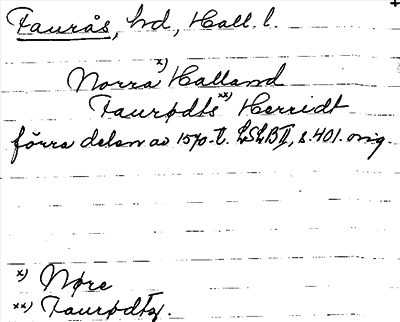 Faurås, hd, Hall. l.
Norra x) Halland
Faurødts xx) Herridt
förra delen av 1570-t. LSLB II, s. 401. orig.
x) Nøre
xx) Faurødtz.